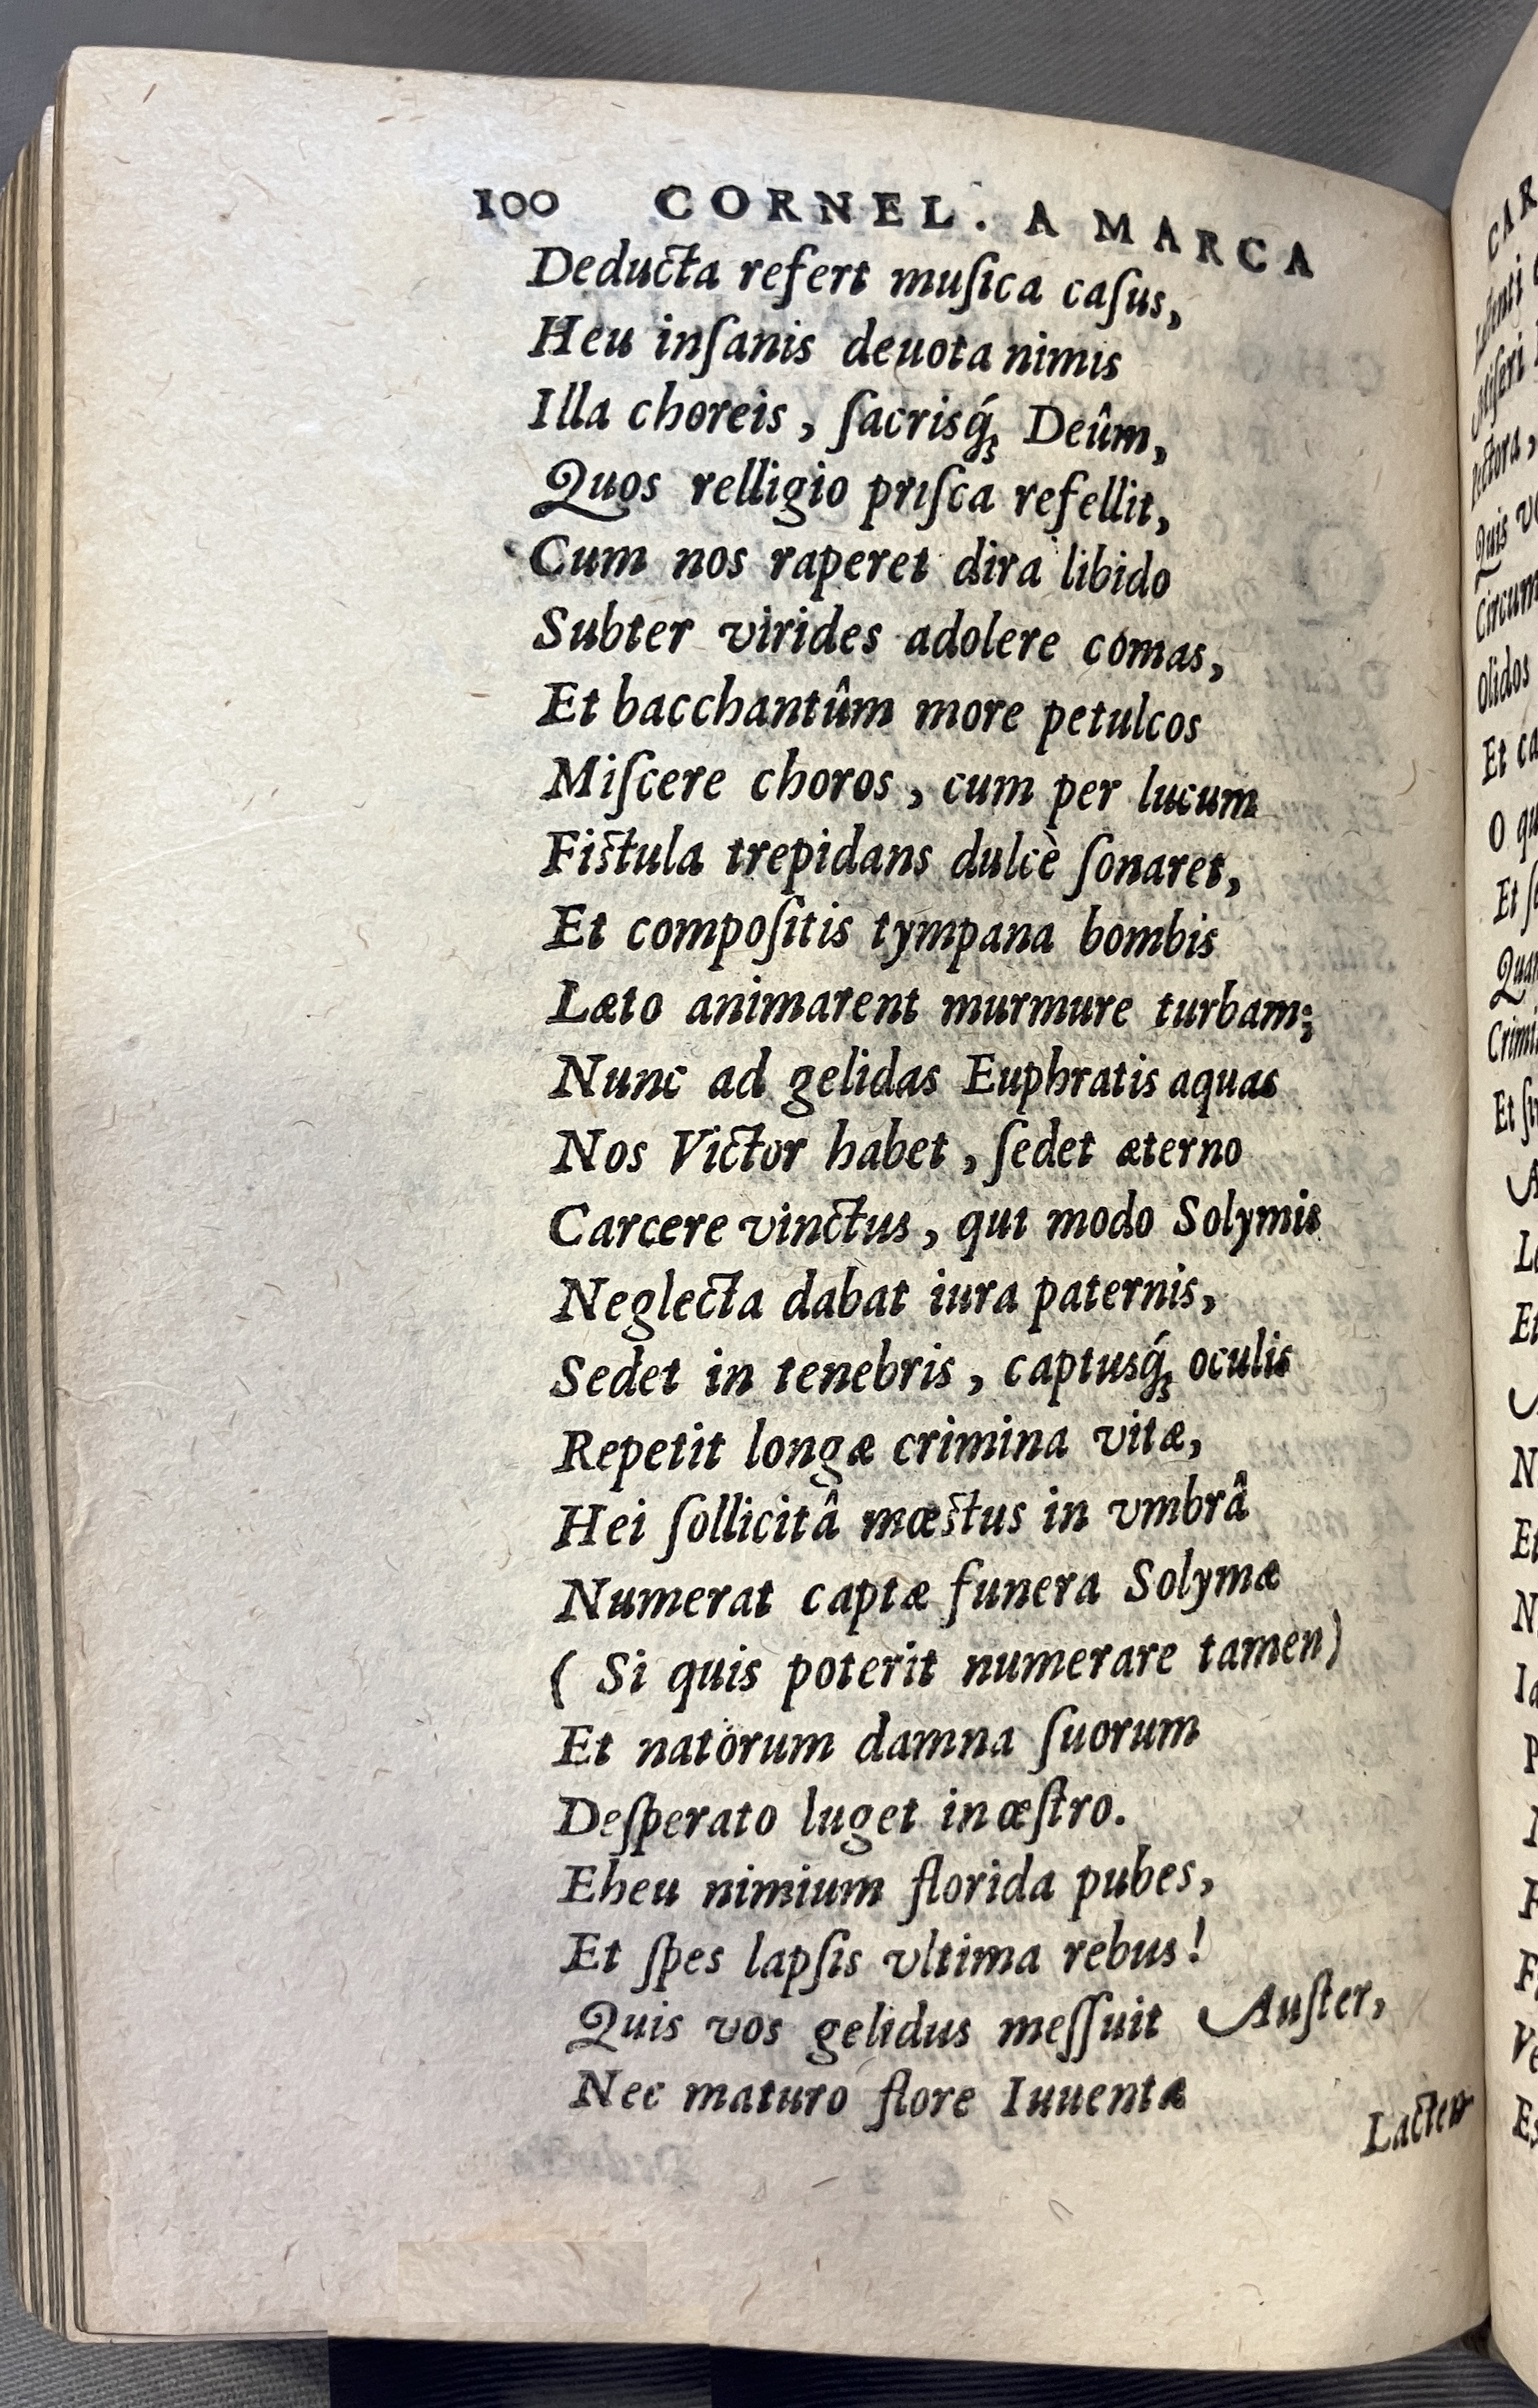 100 CORNEL. A MARCA
Deducta refert muſica caſus,
Heu inſanis deuota nimis
Illa choreis, ſacrisq́; Deûm,
Quos relligio priſca refellit,
Cum nos raperet dira libido
Subter virides adolere comas,
Et bacchantûm more petulcos
Miſcere choros, cum per lucum
Fiſtula trepidans dulcè ſonaret,
Et compoſitis tympana bombis
Læto animarent murmure turbam;
Nunc ad gelidas Euphratis aquas
Nos Victor habet, ſedet æterno
Carcere vinctus, qui modo Solymis
Neglecta dabat iura paternis,
Sedet in tenebris, captusq́; oculis
Repetit longæ crimina vitæ,
Hei ſollicitâ mœſtus in vmbrâ
Numerat captæ funera Solymæ
( Si quis poterit numerare tamen)
Et natorum damna ſuorum
Deſperato luget in œſtro.
Eheu nimium florida pubes,
Et ſpes lapſis vltima rebus!
Quis vos gelidus meſſuit Auſter,
Nec maturo flore Iuuentæ
CAR
Quis
Circum
Olidos
Et ca
O qu
Et
Crimi
Et